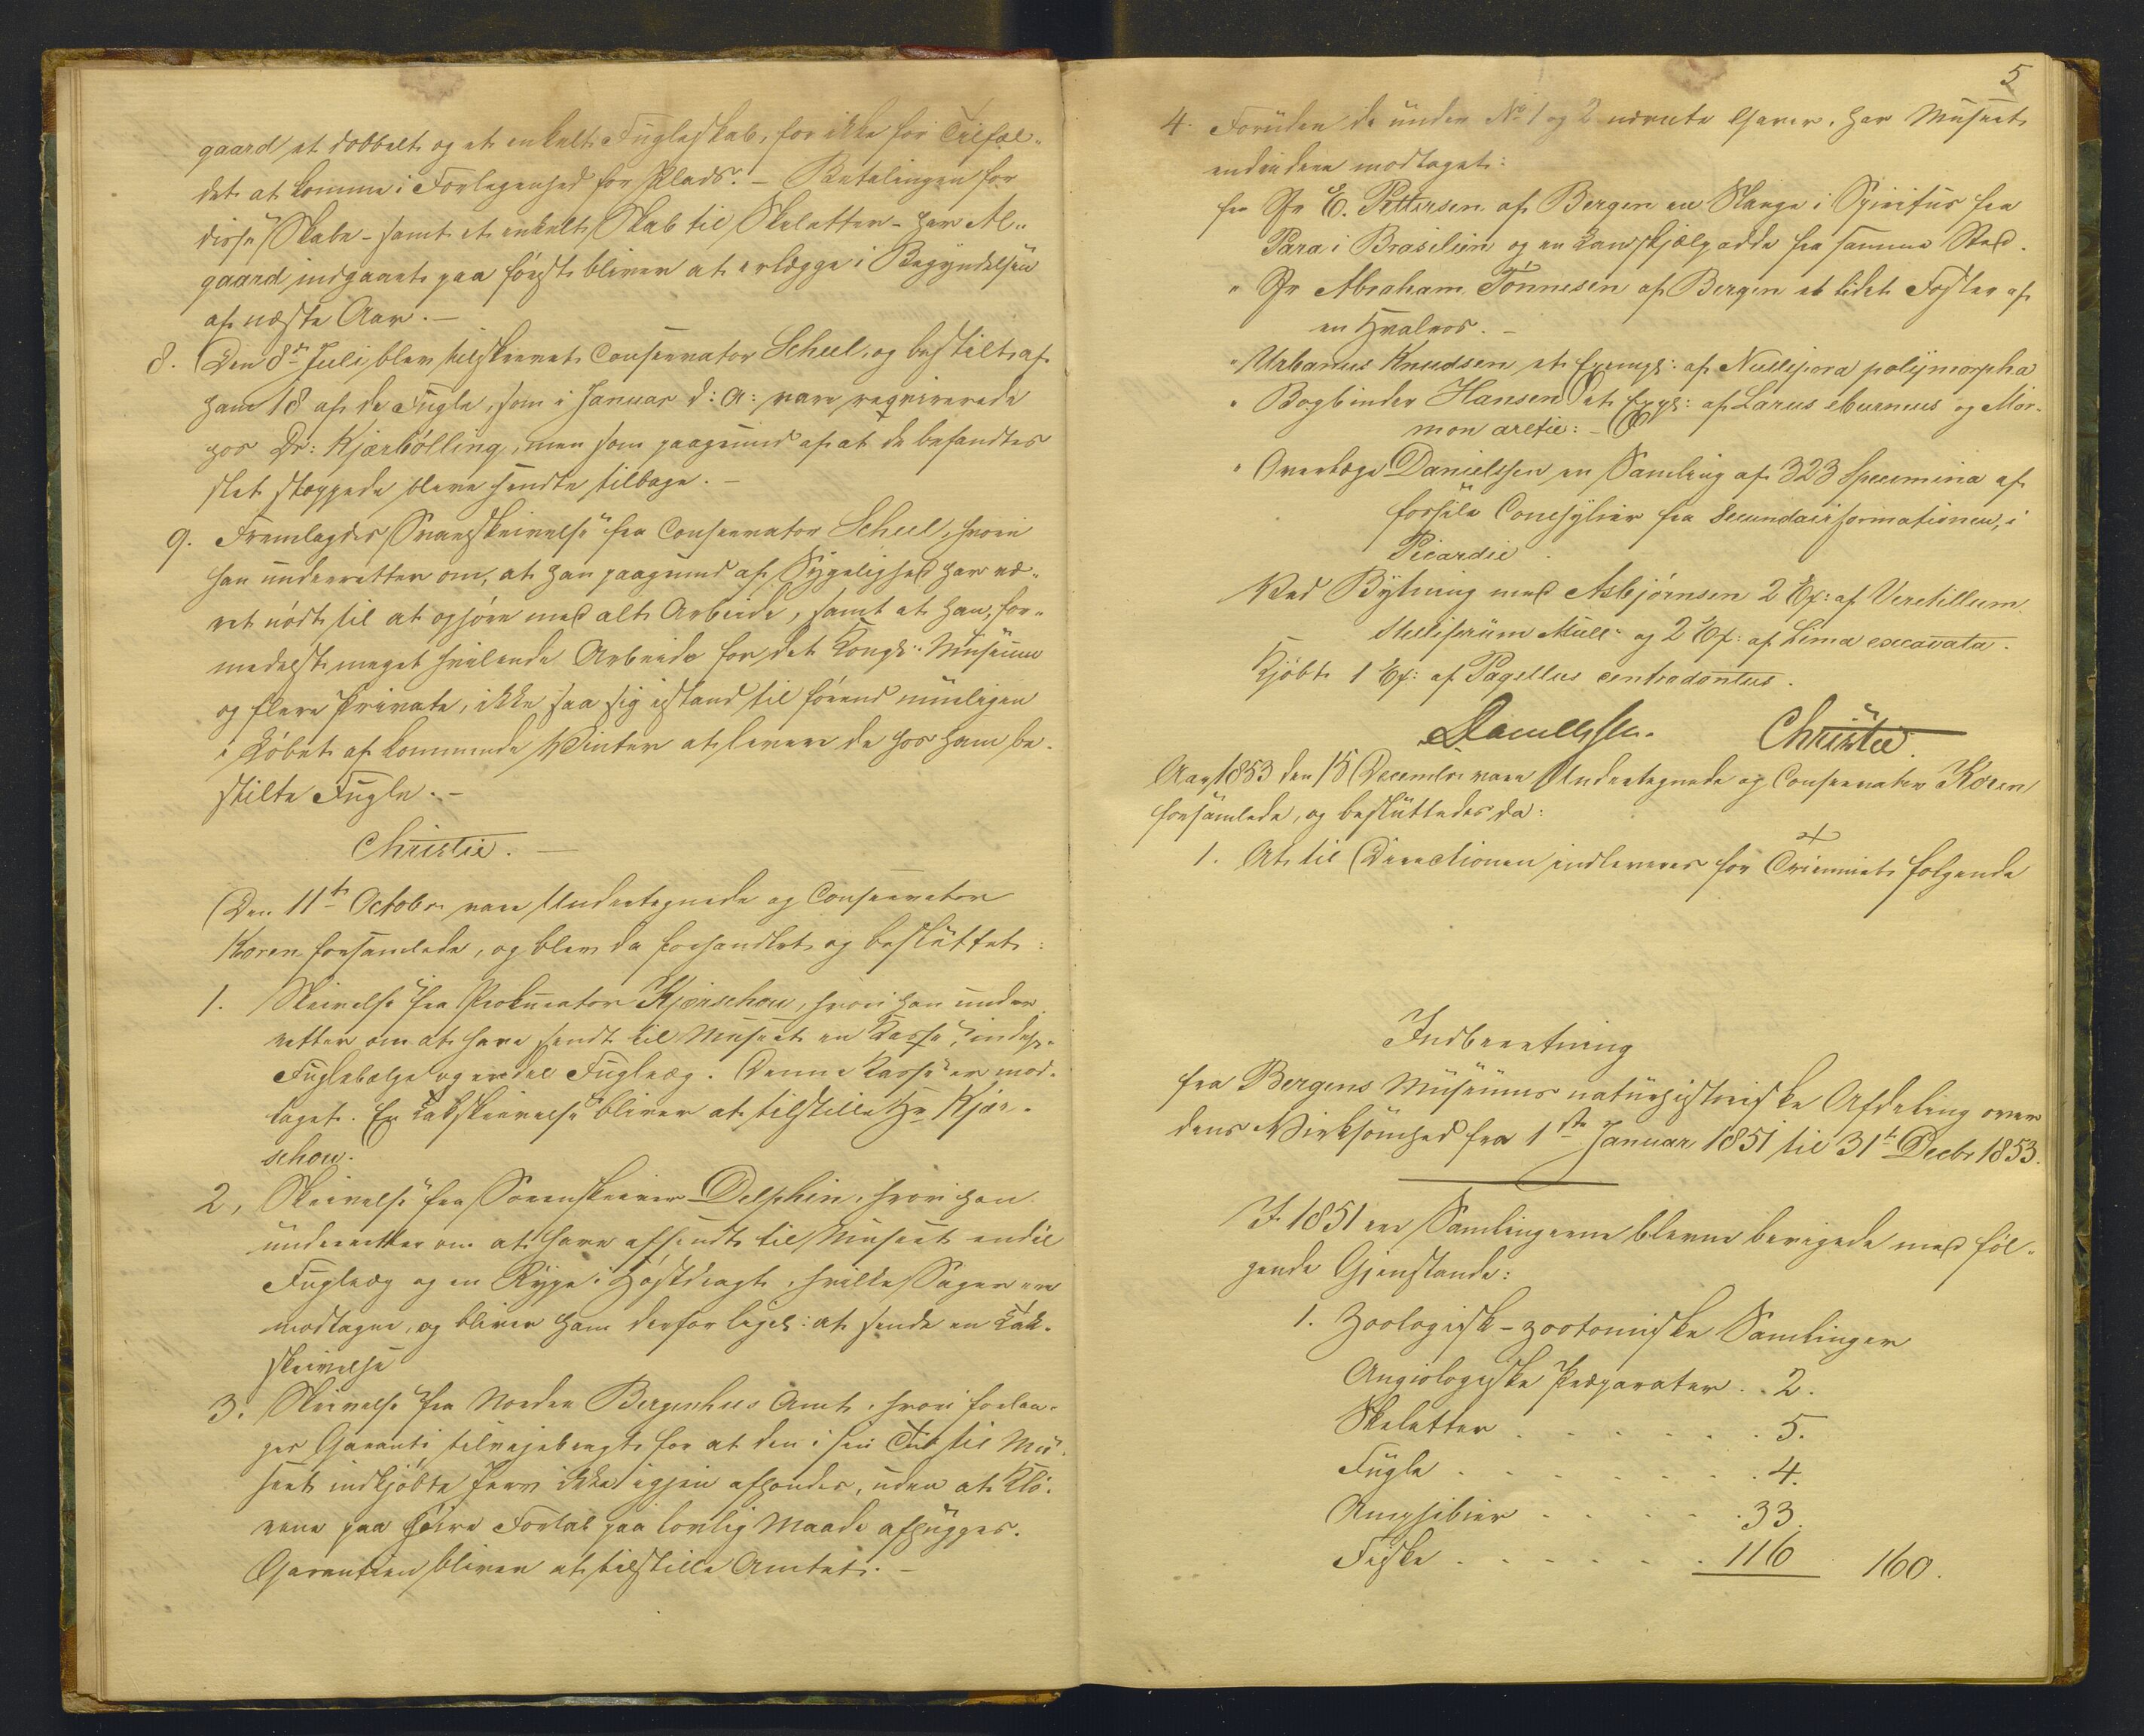 gaard et dobbelt og et enkelt Fugleskab, for ikke for Tilfæl-
det at komme i Forlegenhed for Plads. – Betalingen for
disse Skabe – samt et enkelt Skab til Skeletter – har Al-
gaard indgaaet paa først bliver at erlægge i Begyndelsen
af næste Aar. –
8. Den 8de Juli blev tilskrevet Conservator Scheel, og bestilt af
ham 18 af de Fugle, som i Januar d: A: vare reqvirerede
hos Dr: Kjærbölling, men som paagrund af at de befandtes
slet stoppede bleve sendte tilbage. –
9. Fremlagdes Svarskrivelse fra Conservator Scheel, hvori
han underretter om, at han paagrund af Sygelighed har væ-
ret nödt til at ophöre med alt Arbeide, samt at han, for-
medelst meget hvilende Arbeide for det Kongl: Museum
og flere Private, ikke saa sig istand til förend muligen
i Löbet af kommende Vinter at levere de hos ham be-
stilte Fugle. –
Christie. –
Den 11te Octobr vare Undertegnede og Conservator
Koren forsamlede, og blev da forhandlet og besluttet:
1. Skrivelse fra Prokurator Kjerschow, hvori han under
retter om at have sendt til Museet en Kasse, indeh:
Fuglebælge og endel Fugleæg. Denne Kasse er mod-
taget. En Takskrivelse bliver at tilstille Hr Kjer-
schow.
2, Skrivelse fra Sorenskriver Delphin, hvori han
underretter om at have afsendt til Museet endel
Fugleæg og en Rype i Höstdragt, hvilke Sager ere
modtagne, og bliver ham derfor ligel: at sende en Tak-
skrivelse
3. Skrivelse fra Nordre Bergenhus Amt, hvori forlan-
ges Garanti tilveiebragt for at den i sin Tid til Mu-
seet indkjöbte Jerv ikke igjen afhændes, uden at Klö-
erne paa höire Forlab paa lovlig Maade afhugges.
Garantien bliver at tilstille Amtet. –
5
4. Foruden de under No 1 og 2 nævnte Gaver, har Museet
endvidere modtaget:
fra Hr E. Pettersen af Bergen en Slange i Spiritus fra
Para i Brasilien og en Landskjælpadde fra samme Sted.
" Hr Abraham Tönnesen af Bergen et lidet Foster af
en Hvalros. –
" Urbanus Knudsen et Exempl: af Nullipora polymorpha
" Bogbinder Hansen et Expl: af Larus eburneus og Mor-
mon arctic: –
" Overlæge Danielssen en Samling af 323 Specimina af
fossile Conchylier fra Secundairformationen, i
Picardie.
Ved Bytning med Asbjörnsen 2 Ex: af Veretillum
stelliferum Müll: og 2 Ex: af Lima excavata.
Kjöbt 1 Ex: af Pagellus centrodontus.
Danielssen. Christie.
Aar 1853 den 15 Decembr vare Undertegnede og Conservator Koren
forsamlede, og besluttedes da:
1. At til Directionen indleveres for Trienniet fölgende
Indberetning
fra Bergens Museums naturhistoriske Afdeling over
dens Virksomhed fra 1ste Januar 1851 til 31te Decbr 1853.
I 1851 ere Samlingerne blevne berigede med föl-
gende Gjenstande:
1. Zoologisk-zootomiske Samlinger
Angiologiske Præparater . . 2.
Skeletter . . . . . . 5.
Fugle . . . . . . . 4.
Amphibier . . . . . 33.
Fiske . . . . . . 116 160.